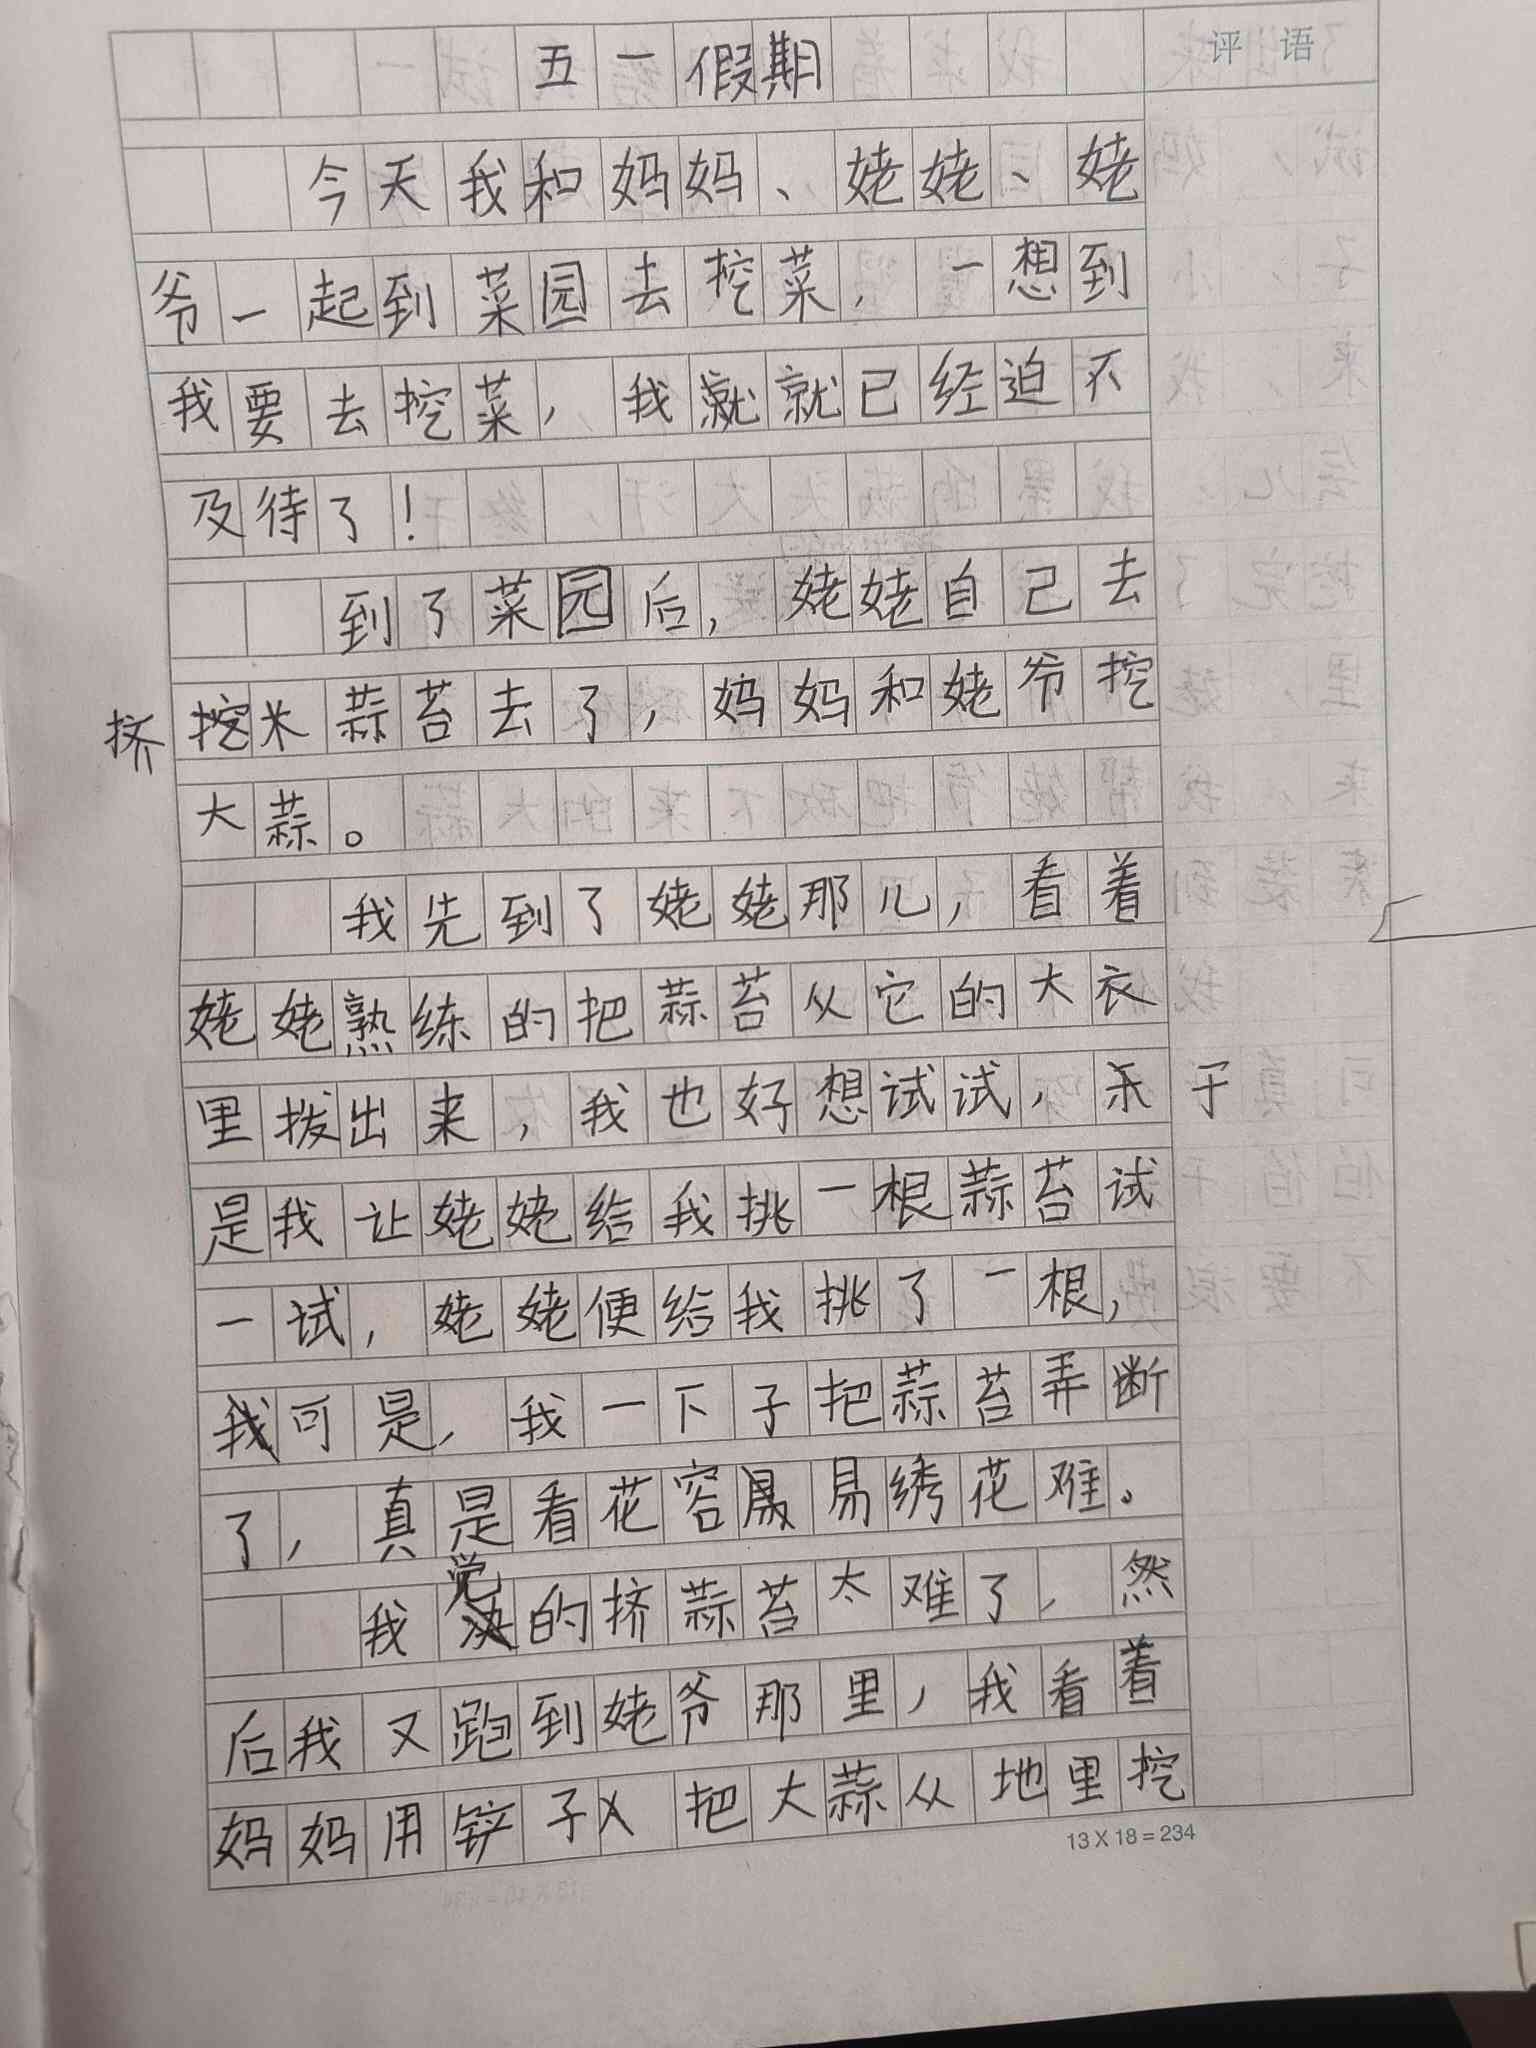 五一假期
评语
今天我和妈妈、姥姥、姥
爷一起到菜园去挖菜，一想到
我要去挖菜，我就就已经迫不
及待了！
到了菜园后，姥姥自己去
挤挖米蒜苔去了，妈妈和姥爷挖
大蒜。
我先到了姥姥那儿，看着
姥姥熟练的把蒜苔从它的大衣
里拨出来，我也好想试试，于
是我让姥姥给我挑一根蒜苔试
一试，姥姥便给我挑了一根，
我可是，我一下子把蒜苔弄断
了，真是看花容易易绣花难。
我觉的挤蒜苔太难了，然
后我又跑到姥爷那里，我看着
妈妈用铲子把大蒜从地里挖
13X18=234